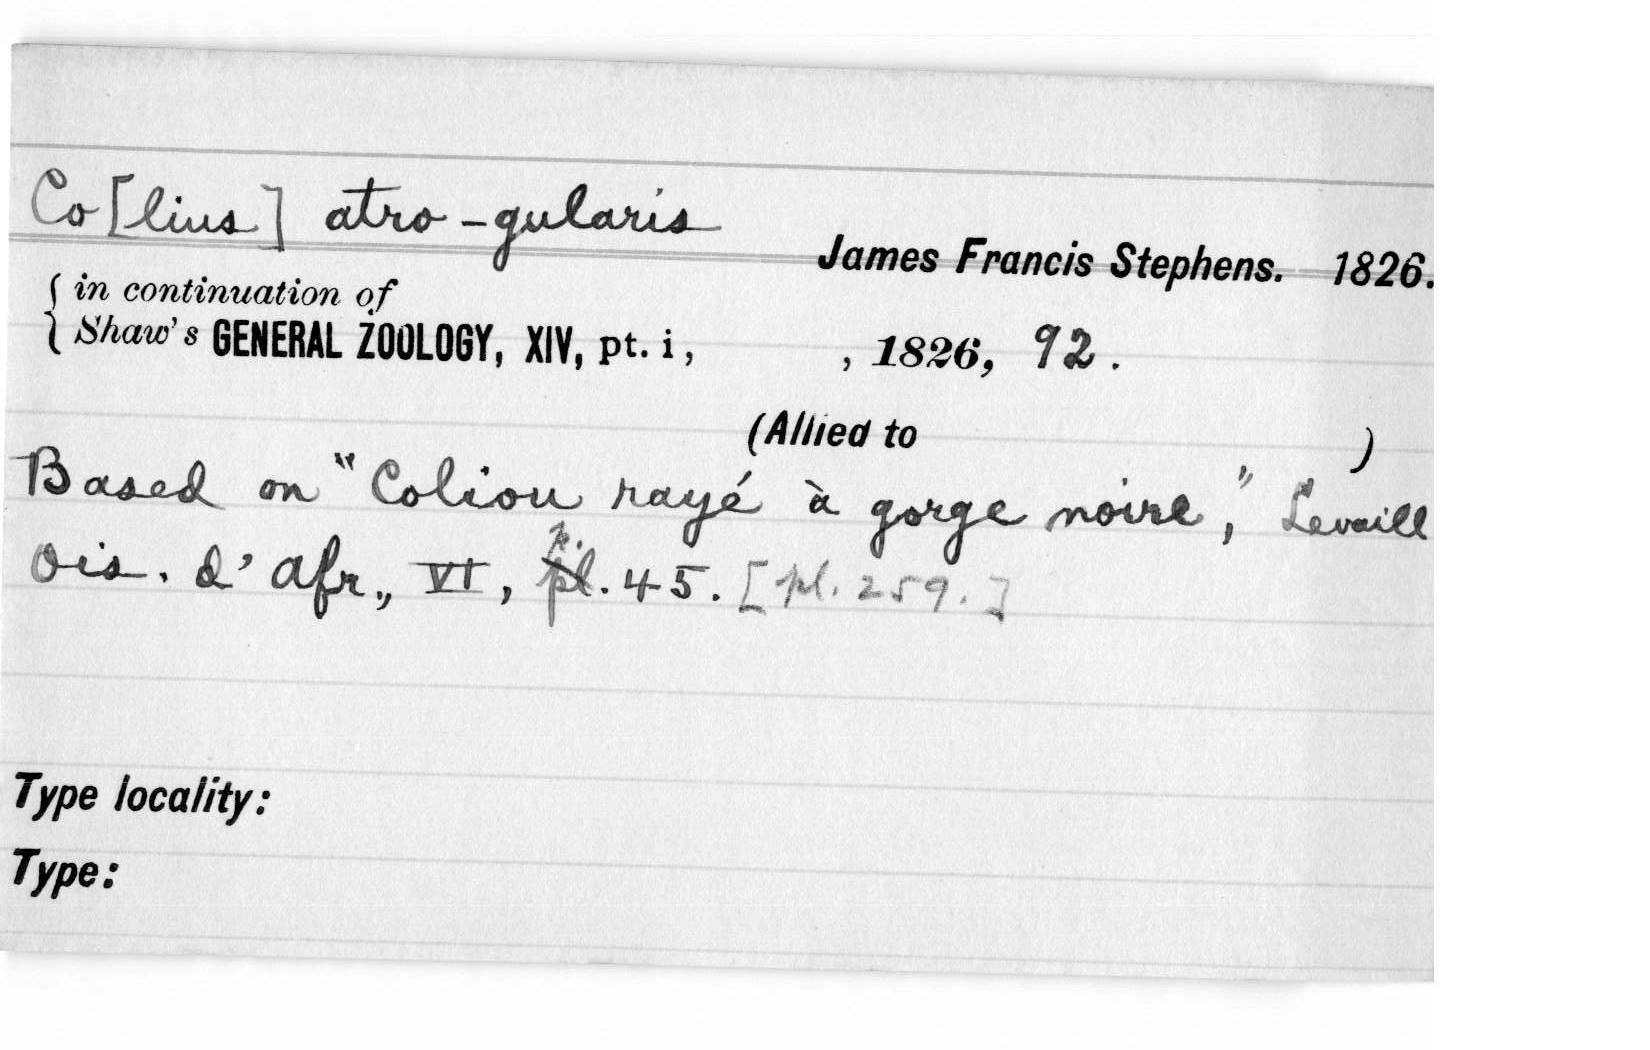 Co[lius] atro-gularis
James Francis Stephens. 1826.
{ in continuation of
Shaw's GENERAL ZOOLOGY, XIV, pt. i, , 1826, 92.
(Allied to )
Based on "Coliou rayé à gorge noire," Levaill
Ois. d'Afr., VI, p. pl. 45. [pl. 259.]
Type locality:
Type: